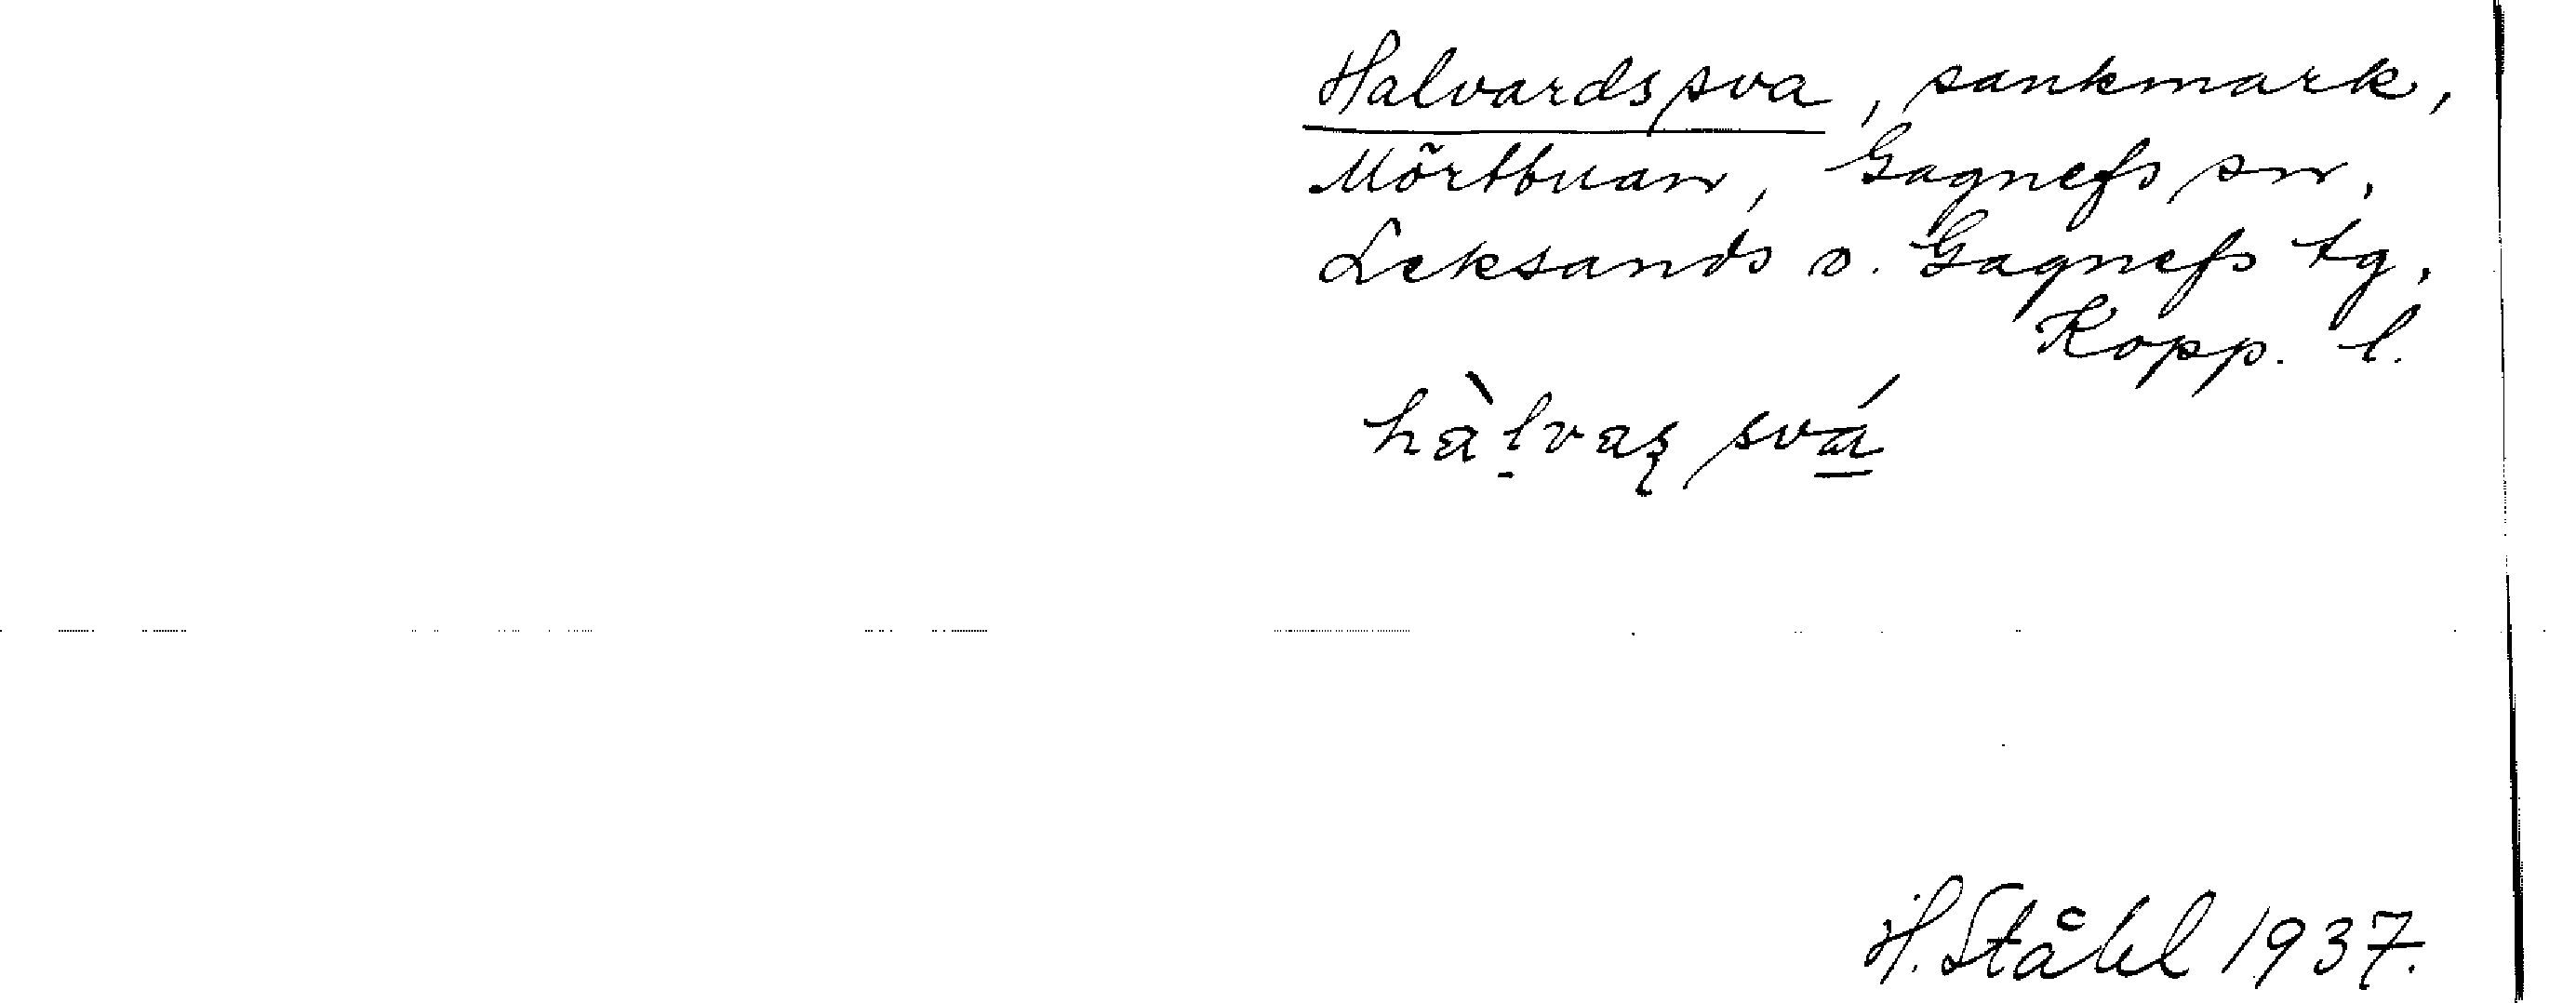 Halvardssva, sankmark,
Mörtbuan, Gagnefs sn,
Leksands o. Gagnefs tg,
Kopp. l.
hàlvaʂ svá
H. Ståhl 1937.